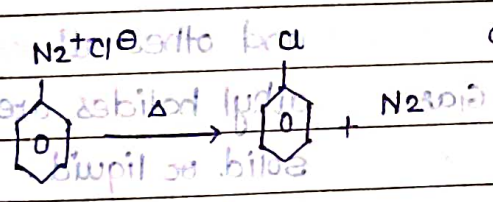 N2+Cl⊖ Cl
Δ + N2